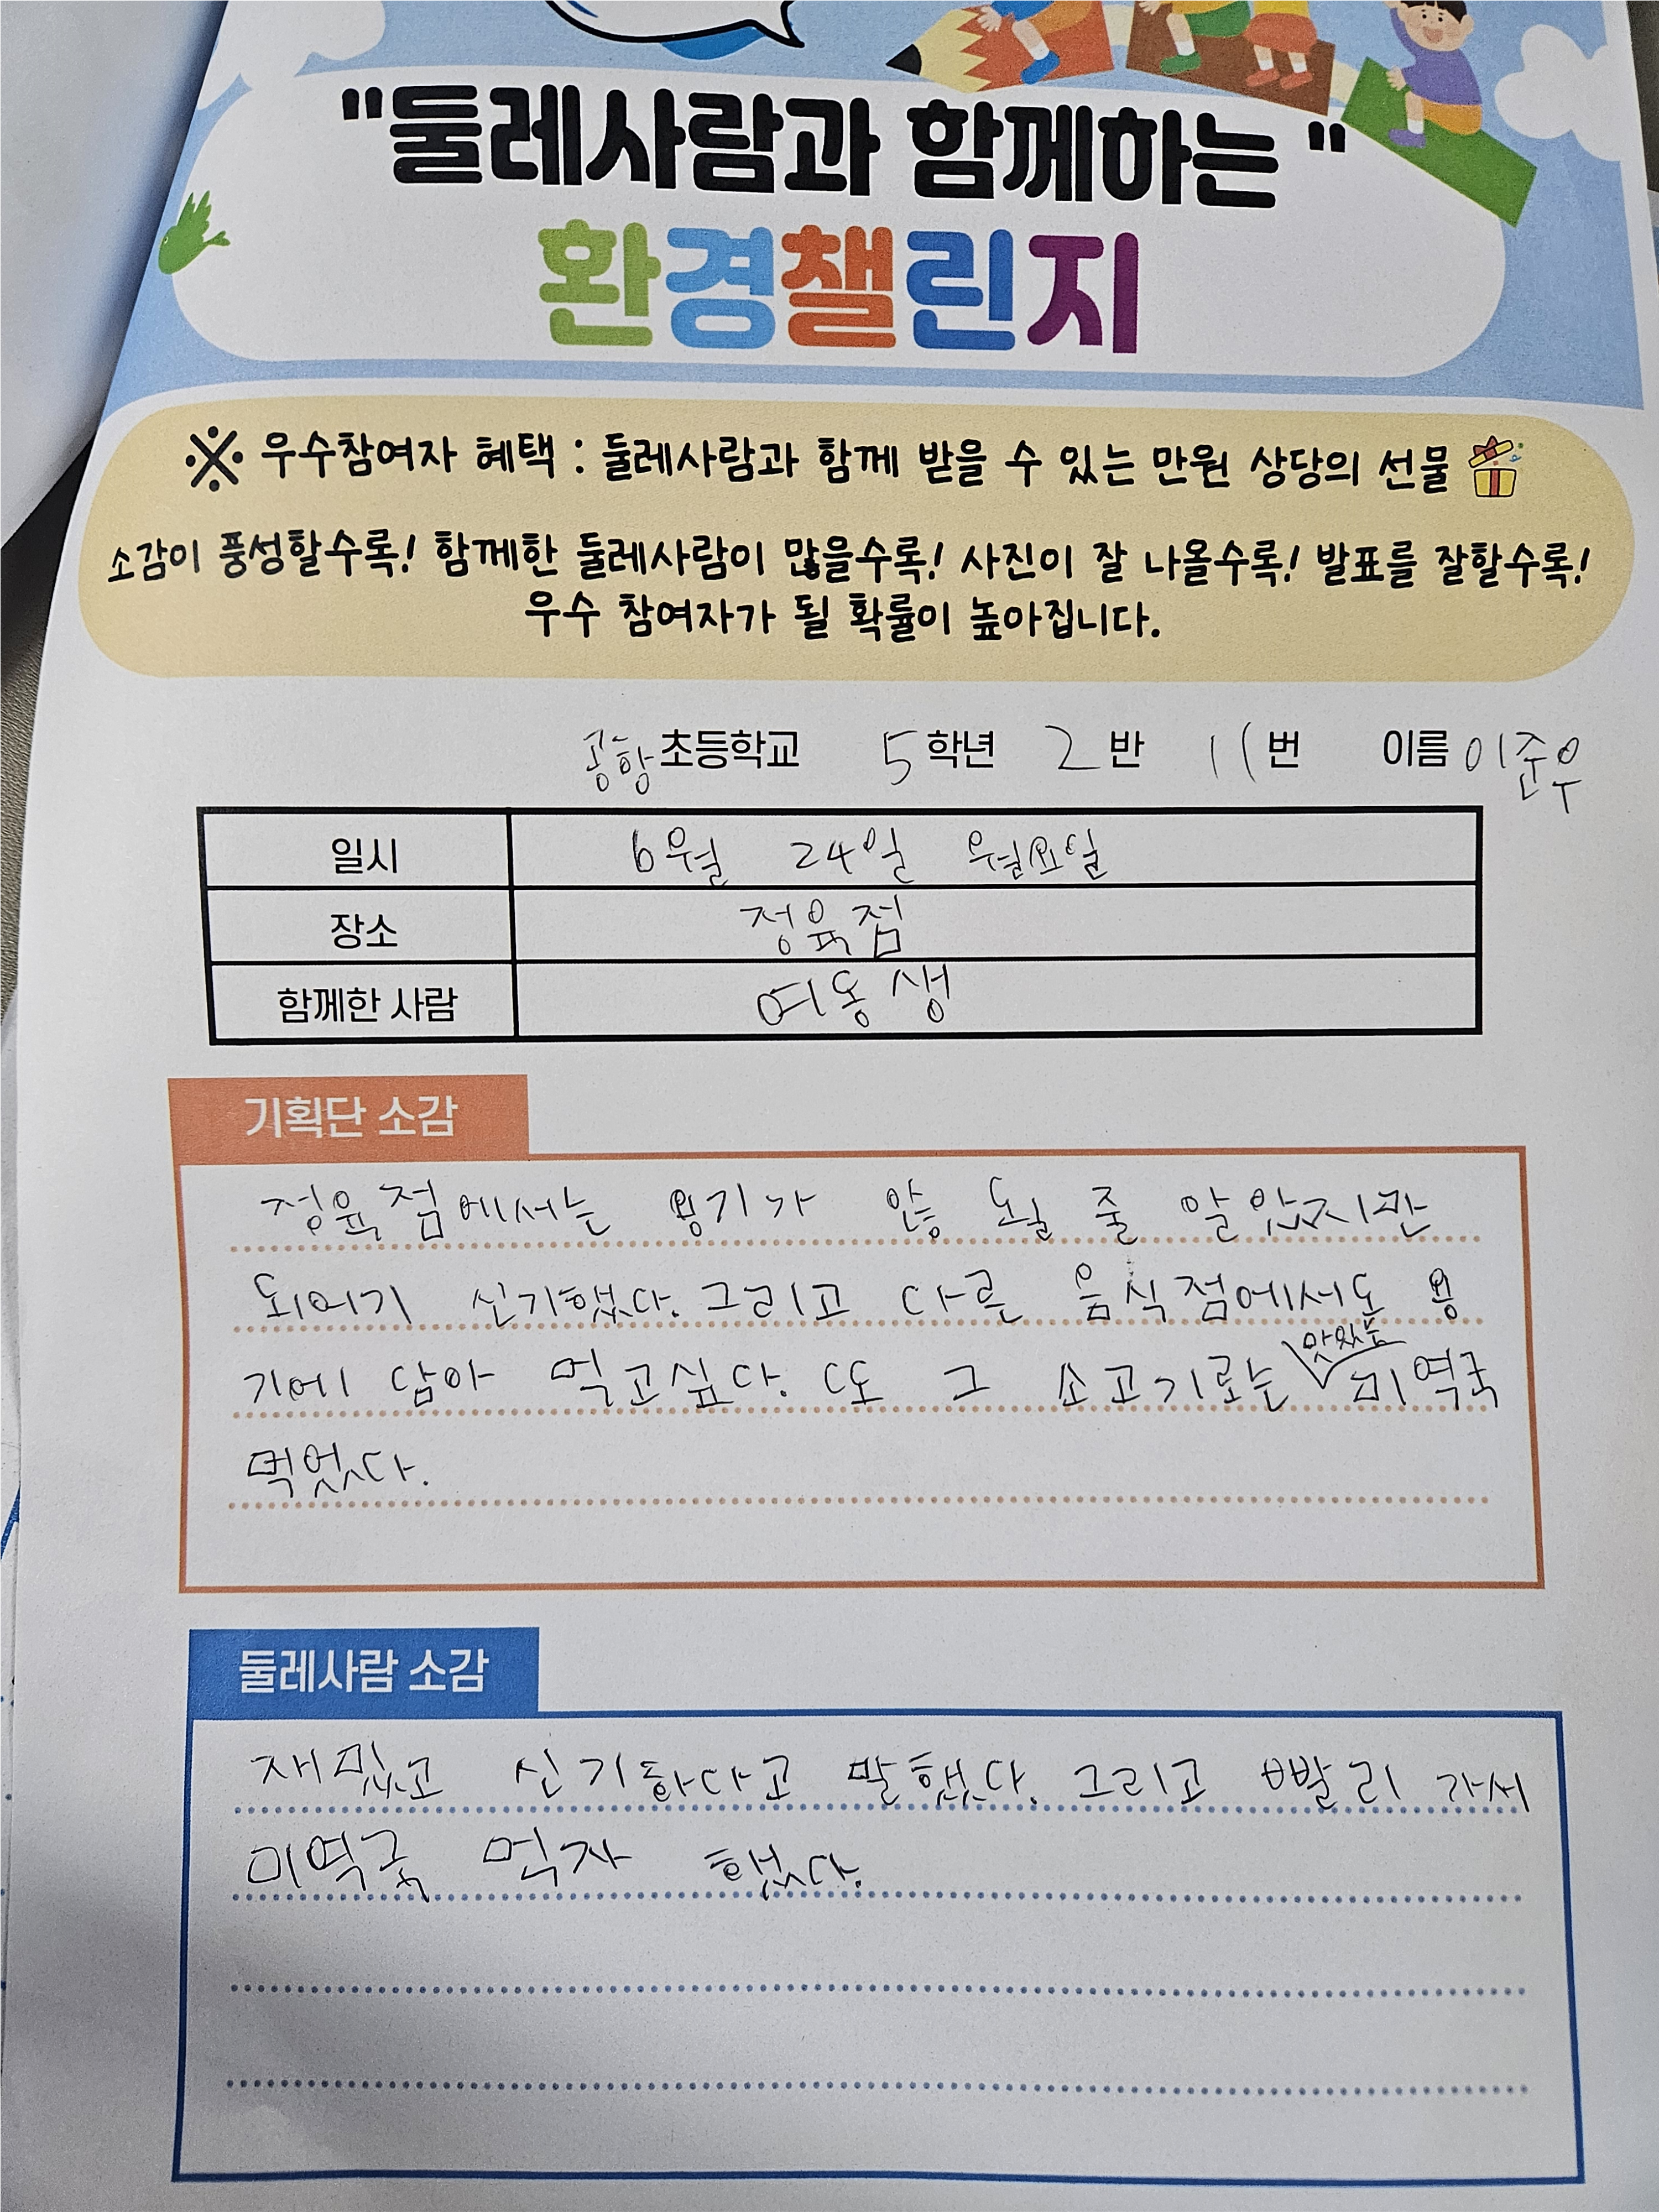 "둘레사람과 함께하는"
환경챌린지
※ 우수참여자 혜택 : 둘레사람과 함께 받을 수 있는 만원 상당의 선물
소감이 풍성할수록! 함께한 둘레사람이 많을수록! 사진이 잘 나올수록! 발표를 잘할수록!
우수 참여자가 될 확률이 높아집니다.
공항초등학교 5학년 2반 11번 이름 이준우
일시 6월 24일 월요일
장소 정육점
함께한 사람 여동생
기획단 소감
정육점에서는 용기가 않 될 줄 알았지만
되어기 신기했다. 그리고 다른 음식점에서도 용
기에 담아 먹고싶다. 또 그 소고기로는 맛있는 미역국
먹었다.
둘레사람 소감
재밌고 신기하다고 말했다. 그리고 빨리 가서
미역국 먹자 했다.